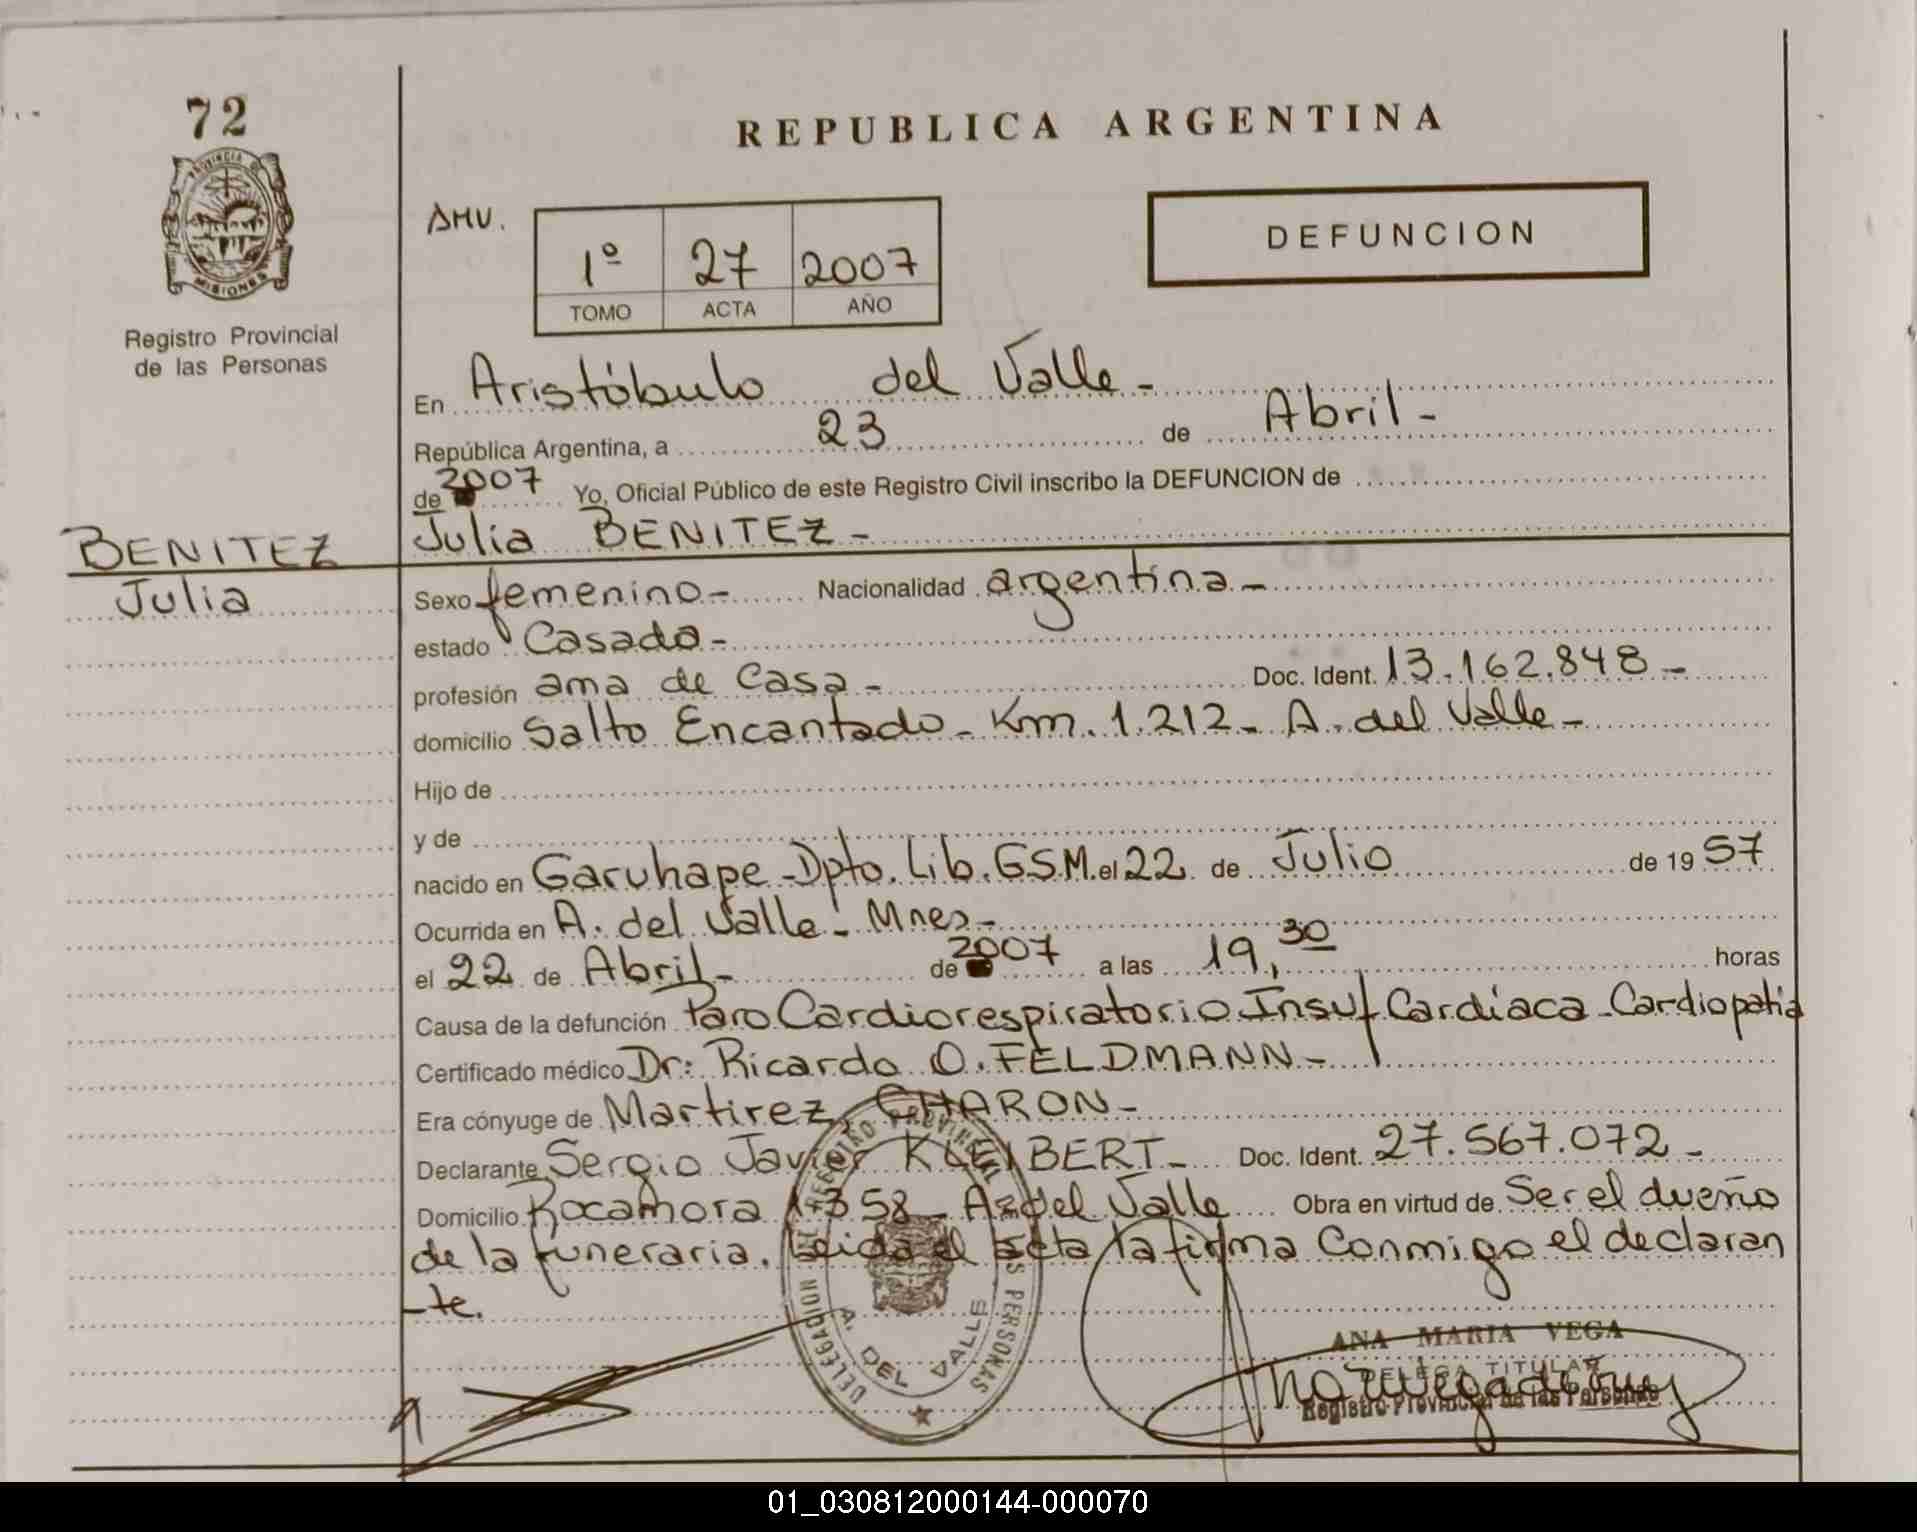 72
PROVINCIA DE
MISIONES
Registro Provincial
de las Personas
REPUBLICA ARGENTINA
AMV.
1º 27 2007
TOMO ACTA AÑO
DEFUNCION
En Aristóbulo del Valle-
República Argentina, a 23 de Abril-
de 2007 Yo, Oficial Público de este Registro Civil inscribo la DEFUNCION de
BENITEZ Julia BENITEZ-
Julia Sexo femenino- Nacionalidad argentina-
estado Casada-
profesión ama de Casa- Doc. Ident. 13.162.848-
domicilio Salto Encantado- Km. 1.212- A. del Valle-
Hijo de
y de
nacido en Garuhape-Dpto. Lib. G.S.M. el 22 de Julio de 1957
Ocurrida en A. del Valle- Mnes-
el 22 de Abril- de 2007 a las 19,30 horas
Causa de la defunción Paro Cardiorespiratorio Insuf Cardíaca-Cardiopatía
Certificado médico Dr: Ricardo O. FELDMANN-
Era cónyuge de Martirez CHARON-
Declarante Sergio Javier KLEIBERT- Doc. Ident. 27.567.072-
Domicilio Rocamora 1358- A. del Valle Obra en virtud de Ser el dueño
de la funeraria. Leida el acta la firma Conmigo el declaran
-te.
REGISTRO PROVINCIAL DE LAS PERSONAS
DELEGACION
A. DEL VALLE
ANA MARIA VEGA
DELEGA TITULAR
Registro Provincial de las Personas
01_030812000144-000070